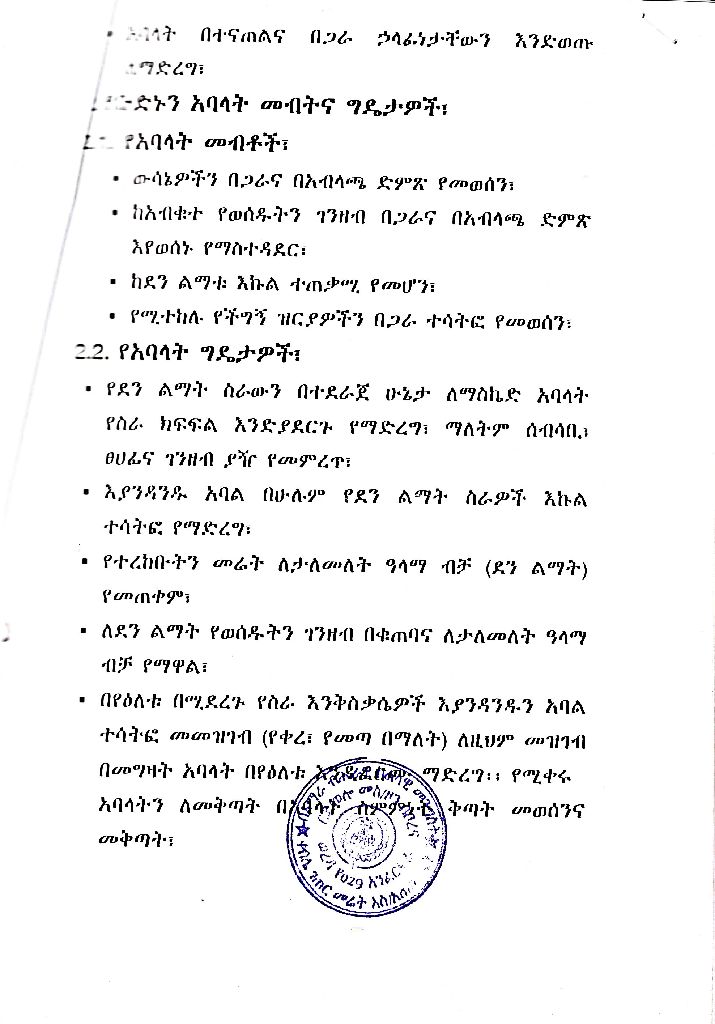 • አባላት በተናጠልና በጋራ ኃላፊነታቸውን እንድወጡ
ማድረግ፣
አባላት መብትና ግዴታዎች፣
የአባላት መብቶች፣
• ውሳኔዎችን በጋራና በአብላጫ ድምጽ የመወሰን፣
• ከአብቁተ የወሰዱትን ገንዘብ በጋራና በአብላጫ ድምጽ
እየወሰኑ የማስተዳደር፣
• ከደን ልማቱ እኩል ተጠቃሚ የመሆን፣
• የሚተከሉ የችግኝ ዝርያዎችን በጋራ ተሳትፎ የመወሰን፣
2.2. የአባላት ግዴታዎች፣
• የደን ልማት ስራውን በተደራጀ ሁኔታ ለማስኬድ አባላት
የስራ ክፍፍል እንድያደርጉ የማድረግ፣ ማለትም ሰብሳቢ፣
ፀሀፊና ገንዘብ ያዥ የመምረጥ፣
• እያንዳንዱ አባል በሁሉም የደን ልማት ስራዎች እኩል
ተሳትፎ የማድረግ፣
• የተረከቡትን መሬት ለታለመለት ዓላማ ብቻ (ደን ልማት)
የመጠቀም፣
• ለደን ልማት የወሰዱትን ገንዘብ በቁጠባና ለታለመለት ዓላማ
ብቻ የማዋል፣
• በየዕለቱ በሚደረጉ የስራ እንቅስቃሴዎች እያንዳንዱን አባል
ተሳትፎ መመዝገብ (የቀረ፣ የመጣ በማለት) ለዚህም መዝገብ
በመግዛት አባላት በየዕለቱ ማድረግ፡፡ የሚቀሩ
አባላትን ለመቅጣት ቅጣት መወሰንና
መቅጣት፣